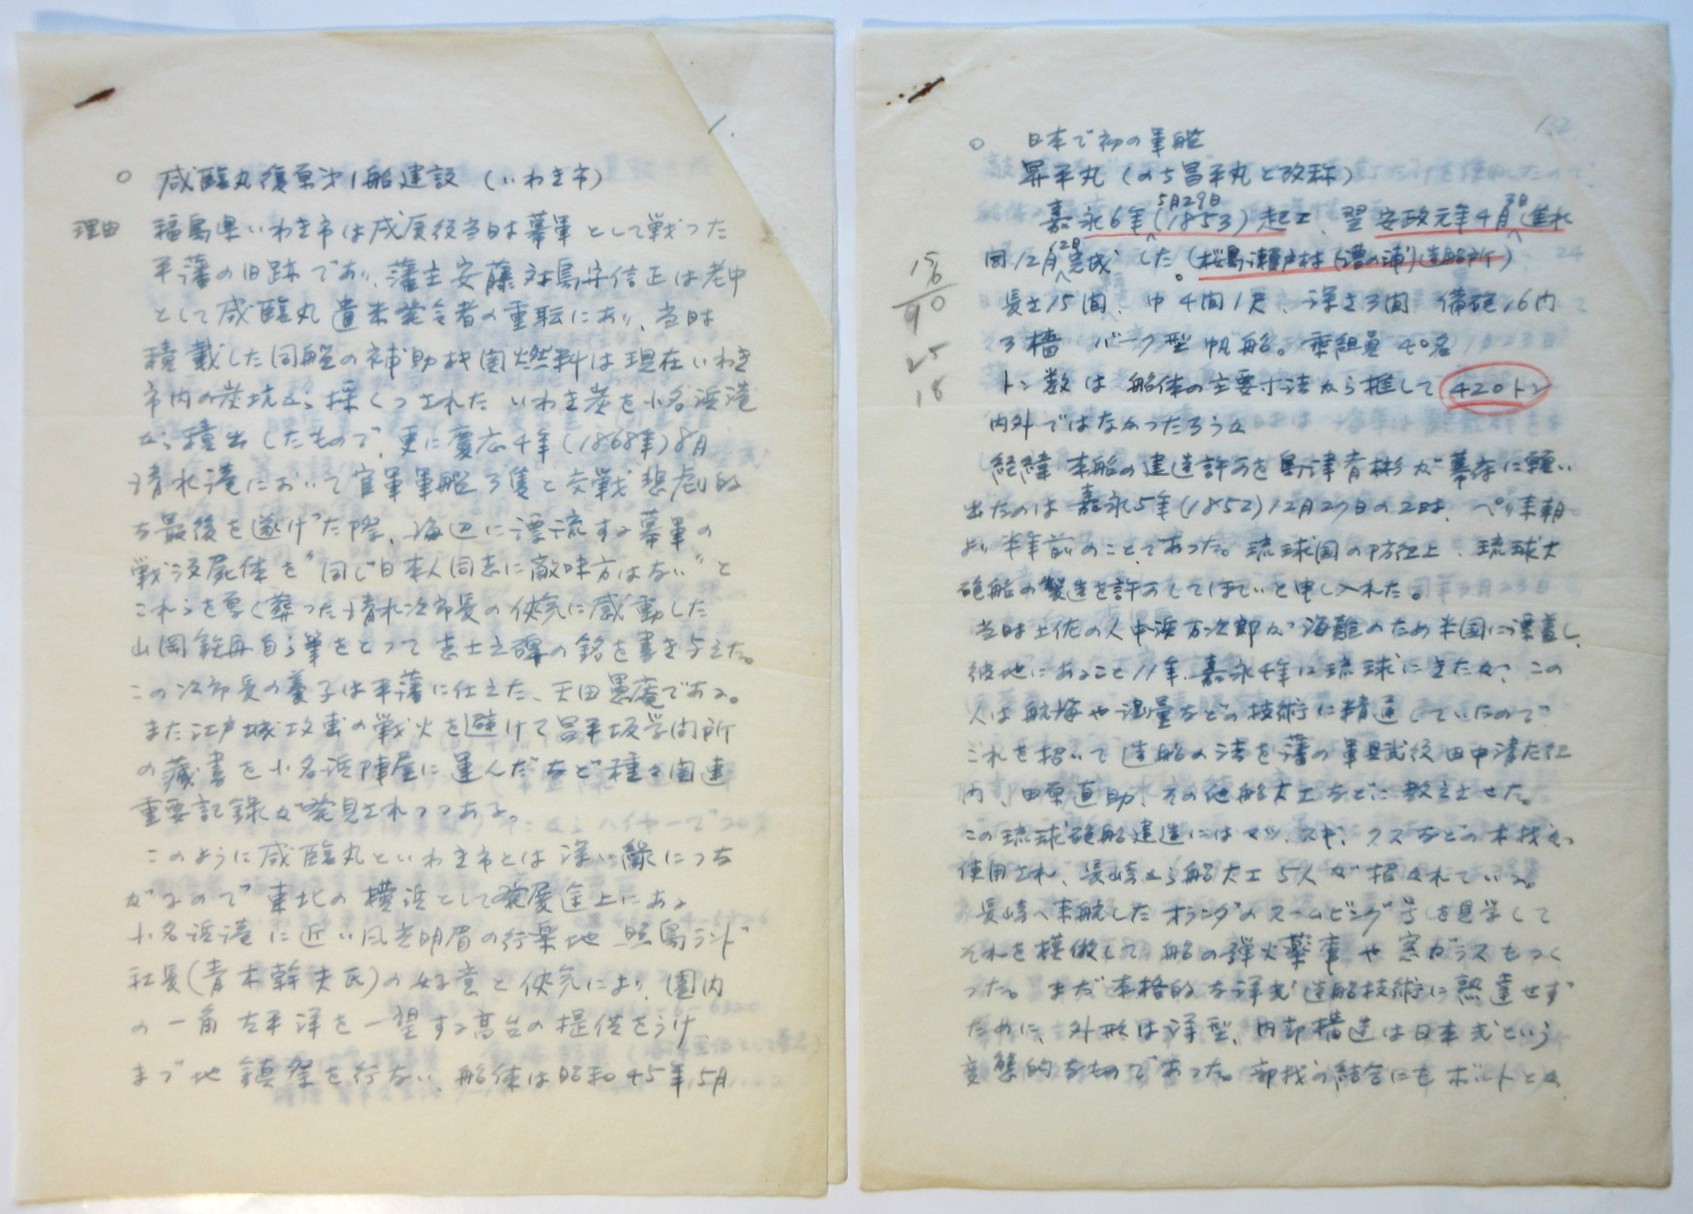 1.
○ 咸臨丸復原第1船建設(いわき市)
理由 福島県いわき市は戊辰役当時は幕軍として戦つた
平藩の旧跡であり、藩主安藤対島守信正は老中
として咸臨丸遣米発令者の重職にあり、当時
積載した同艦の補助機関燃料は現在いわき
市内の炭坑から採くつされたいわき炭を小名浜港
から積出したもので、更に慶応4年(1868年)8月
清水港において官軍軍艦3隻と交戦悲劇的
な最後を遂げた際、海辺に漂流する幕軍の
戦没屍体を"同じ日本人同志に敵味方はない"と
これらを厚く葬つた清水次郎長の侠気に感動した
山岡鉄舟自ら筆をとつて壮士之碑の銘を書き与えた。
この次郎長の養子は平藩に仕えた、天田愚庵である。
また江戸城攻重の戦火を避けて昌平坂学問所
の蔵書を小名浜陣屋に運んだなど種々関連
重要記録が発見されつつある。
このように咸臨丸といわき市とは深い縁につな
がるので東北の横浜として発展途上にある
小名浜港に近い風光明眉の行楽地 照島ランド
社長(青木幹夫氏)の好意と侠気により、園内
の一角 太平洋を一望する高台の提供をうけ
まづ地鎮祭を行ない、船体は昭和45年5月
○ 日本で初の軍艦
昇平丸(のち昌平丸と改称)
嘉永6年5月29日(1853)起工、翌安政元年4月 日進水
同12月12日完成した。(桜島瀬戸村(漕の浦)造船所)
長さ15間、巾4間1尺、深さ3間 備砲16内
3檣 バーク型帆船。乗組員40名
トン数は船体の主要寸法から推して420トン
内外ではなかつたろうか
15
6
90
25
18
経緯 本船の建造許可を島津斉彬が幕府に願い
出たのは嘉永5年(1852)12月27日の2時、ペリ来朝
より半年前のことであつた。琉球国の防衛上、琉球大
砲船の製造を許可してほしいと申し入れた。
当時土佐の人中浜万次郎が海難のため米国に漂着し、
彼地にあること11年、嘉永4年に琉球にきたが、この
人は航海や測量などの技術に精通していたので
これを招いて造船の法を藩の軍賦役田中清左仁
内、田原直助、その他船大工などに教えさせた。
この琉球砲船建造にはマツ、スギ、クスなどの木材が
使用され、長崎から船大工5人が招かれている。
長崎へ来航したオランダのスームビング号を見学して
それを模倣して船の弾火薬庫や窓ガラスもつく
つた。まだ本格的な洋式造船技術に熟達せず
ために、外形は洋型、内部構造は日本式という
変態的なものであつた。部材の結合にもボルトとか